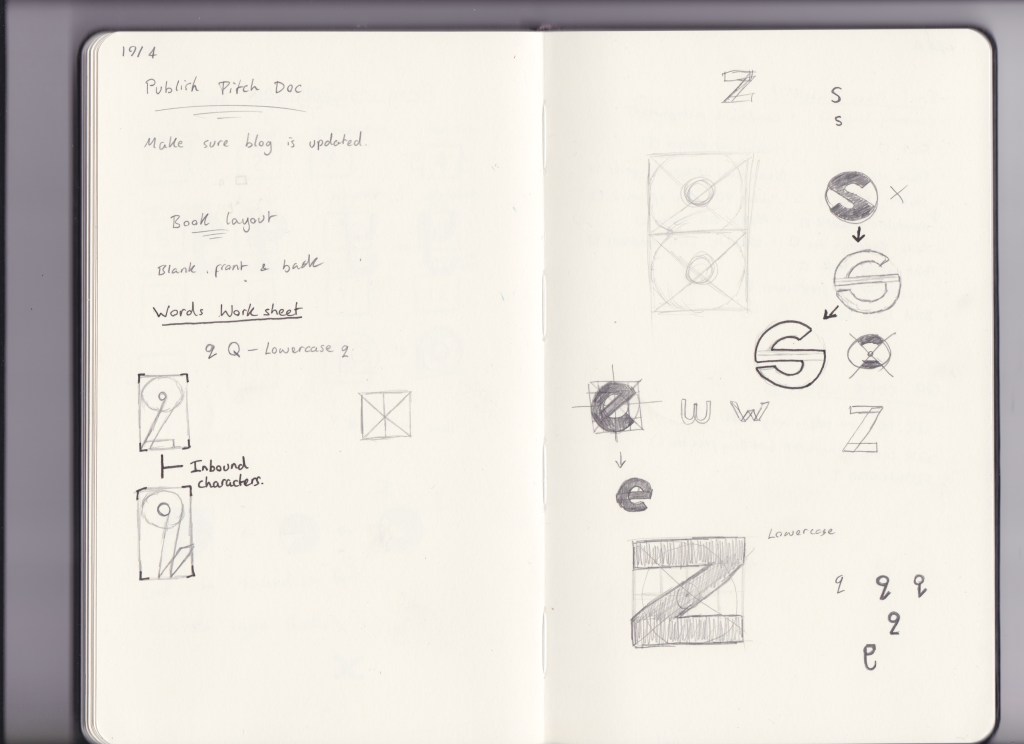 19/4
Publish Pitch Doc
Make sure blog is updated.
Book layout
Blank front & back
Words Work sheet
q Q - Lowercase q
Inbound
characters.
Z
S
s
S
S
S
e
w w
Z
e
Z
Lowercase
q q q
q
e